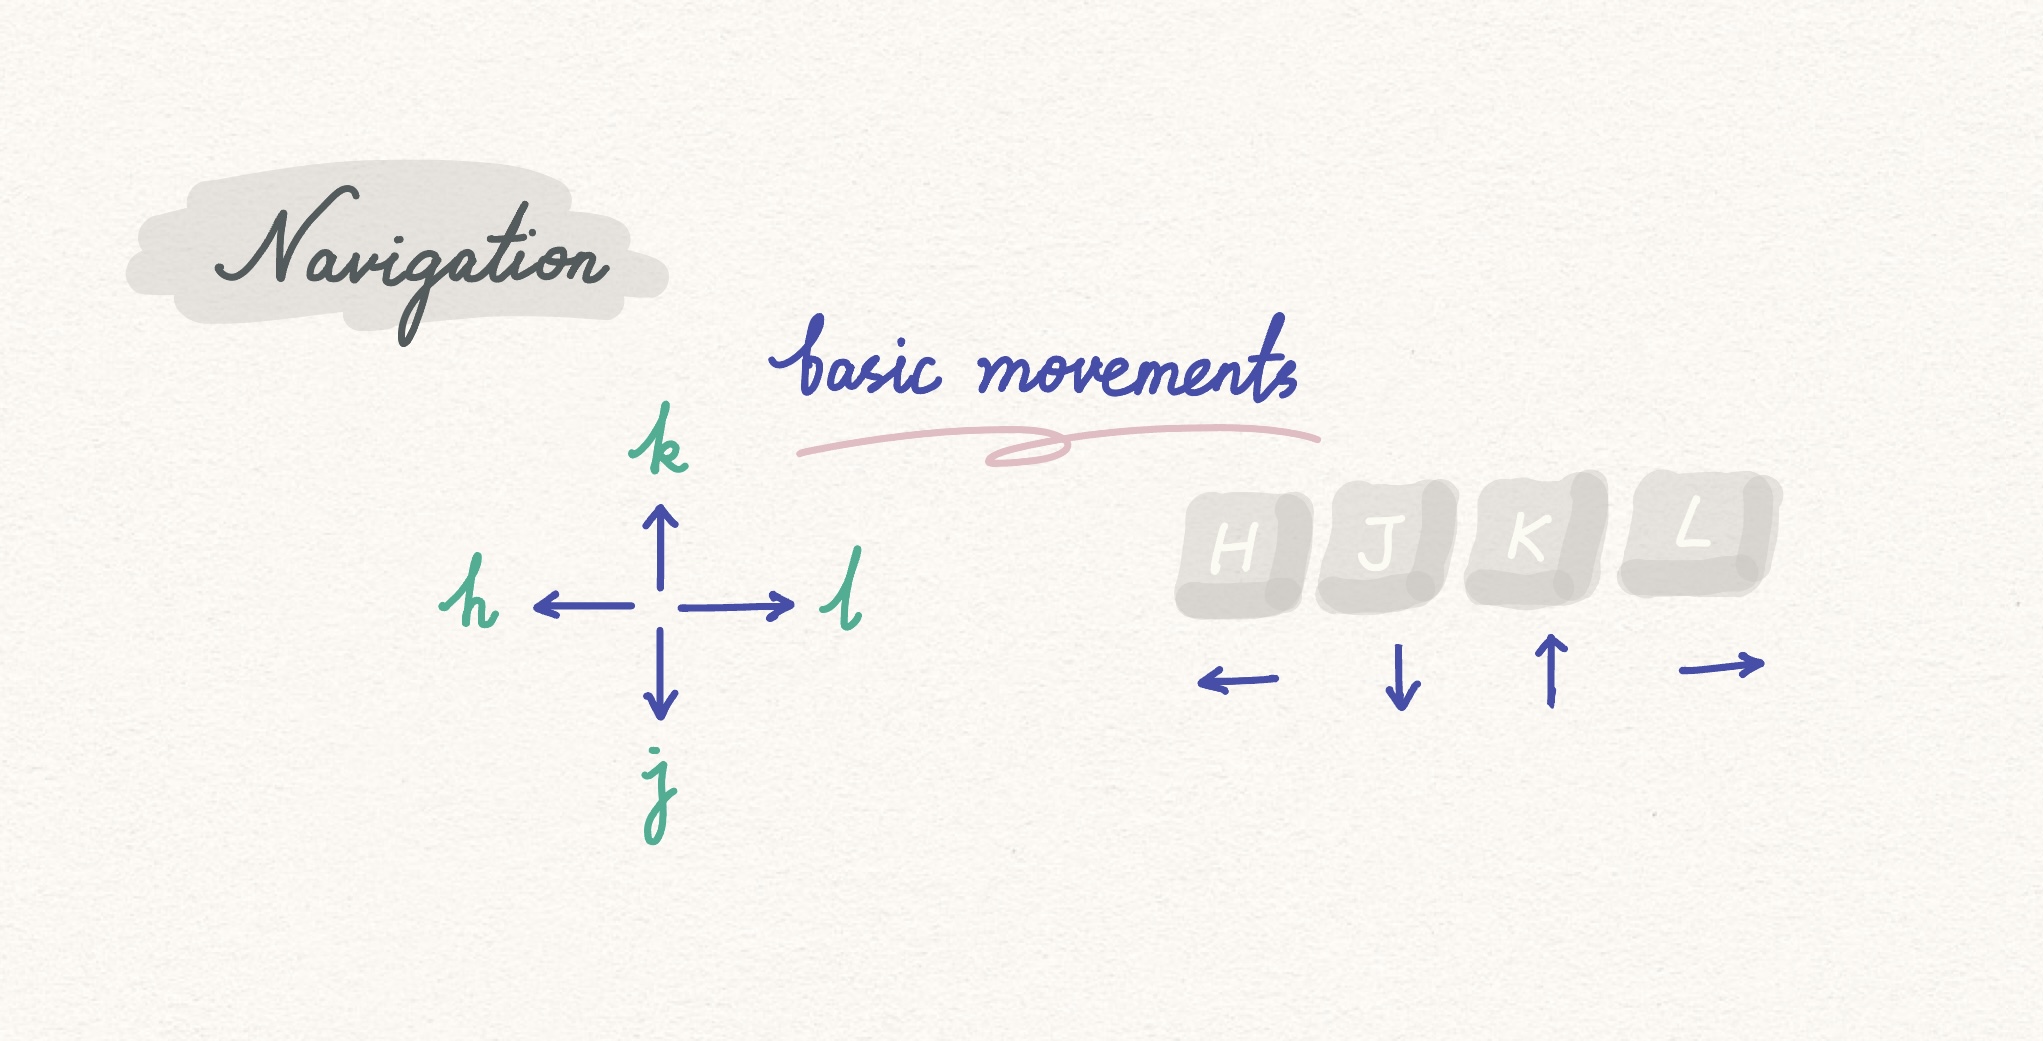 Navigation
basic movements
k
h l
j
H J K L